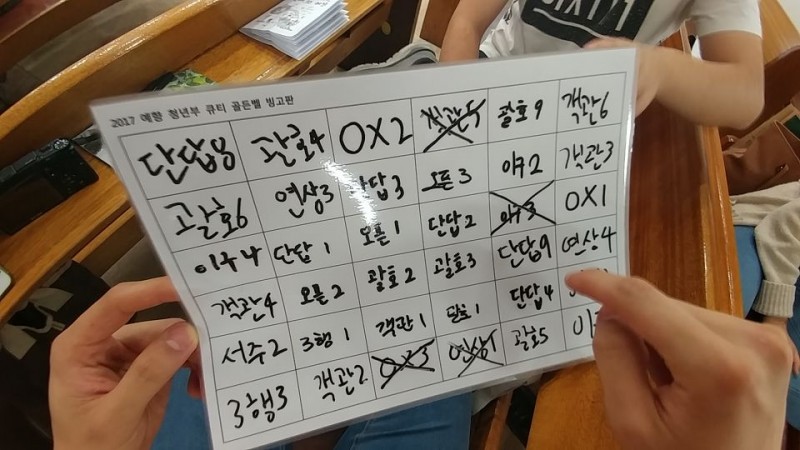 2017 예향 청년부 큐티 골든벨 빙고판
단답8 괄호4 OX2 객관5 괄호9 객관6
괄호6 연상3 단답3 오픈3 야구2 객관3
이구나 단답1 오픈1 단답2 야구3 OX1
객관4 오픈2 괄호2 괄호3 단답9 연상4
서주2 3행1 객관1 괄호1 단답4
3행3 객관2 OX3 연상1 괄호5